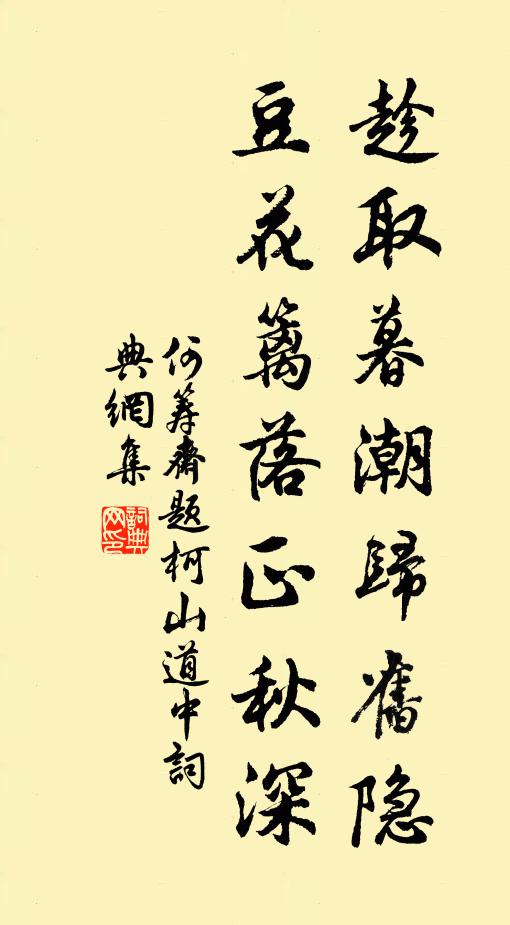 趁取暮潮歸舊隐
豆花篱落正秋深
何筹齋题柯山道中詞
典網集
詞典
网印